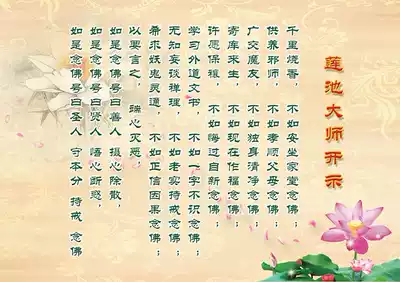 莲池大师开示
千里烧香，不如安坐家堂念佛；
供养邪师，不如孝顺父母念佛；
广交魔友，不如独身清净念佛；
寄库来生，不如现在作福念佛；
许愿保禳，不如悔过自新念佛；
学习外道文书，不如一字不识念佛；
无知妄谈禅理，不如老实持戒念佛；
希求妖鬼灵通，不如正信因果念佛；
以要言之，端心灭恶，
如是念佛号曰善人 摄心除散，
如是念佛号曰贤人 悟心断惑，
如是念佛号曰圣人 守本分 持戒 念佛